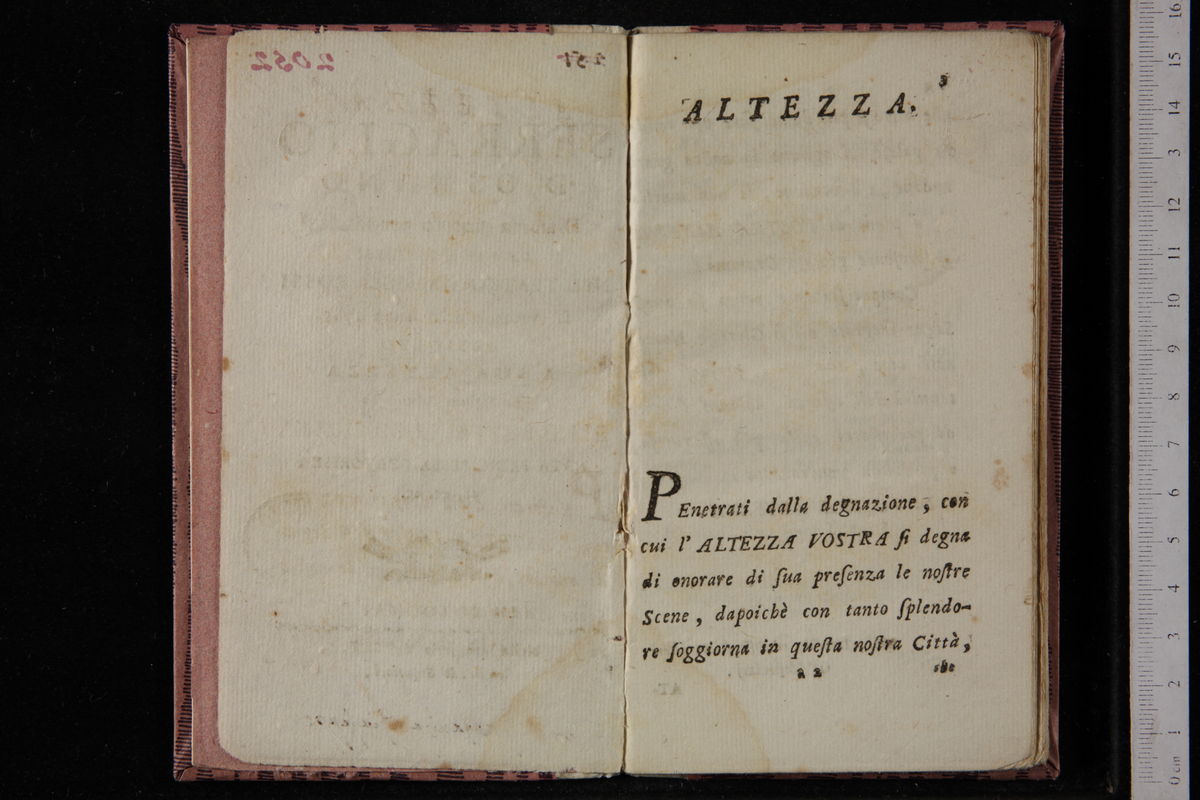 2052
251
3
ALTEZZA.
PEnetrati dalla degnazione, con
cui l' ALTEZZA VOSTRA si degna
di onorare di sua presenza le nostre
Scene, dapoichè con tanto splendo-
re soggiorna in questa nostra Città,
a 2
che
16
15
14
13
12
11
10
9
8
7
6
5
4
3
2
1
0 cm